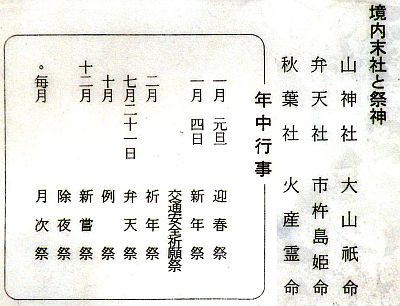 境内末社と祭神
山神社 大山祇命
弁天社 市杵島姫命
秋葉社 火産霊命
年中行事
一月 元旦 迎春祭
一月 四日 新年祭
交通安全祈願祭
二月 祈年祭
七月二十一日 弁天祭
十月 例祭
十二月 新嘗祭
除夜祭
。毎月 月次祭